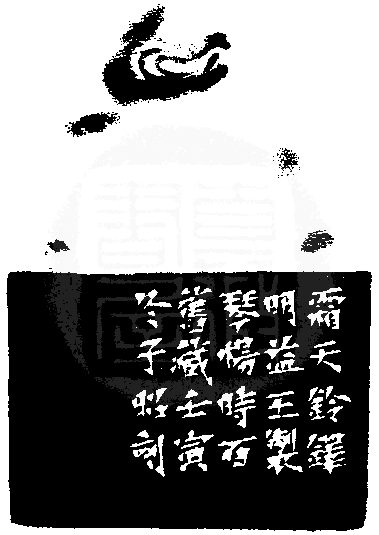 霜天鈴鐸
明益王製
琴楊時百
舊藏壬寅
冬子昭刻